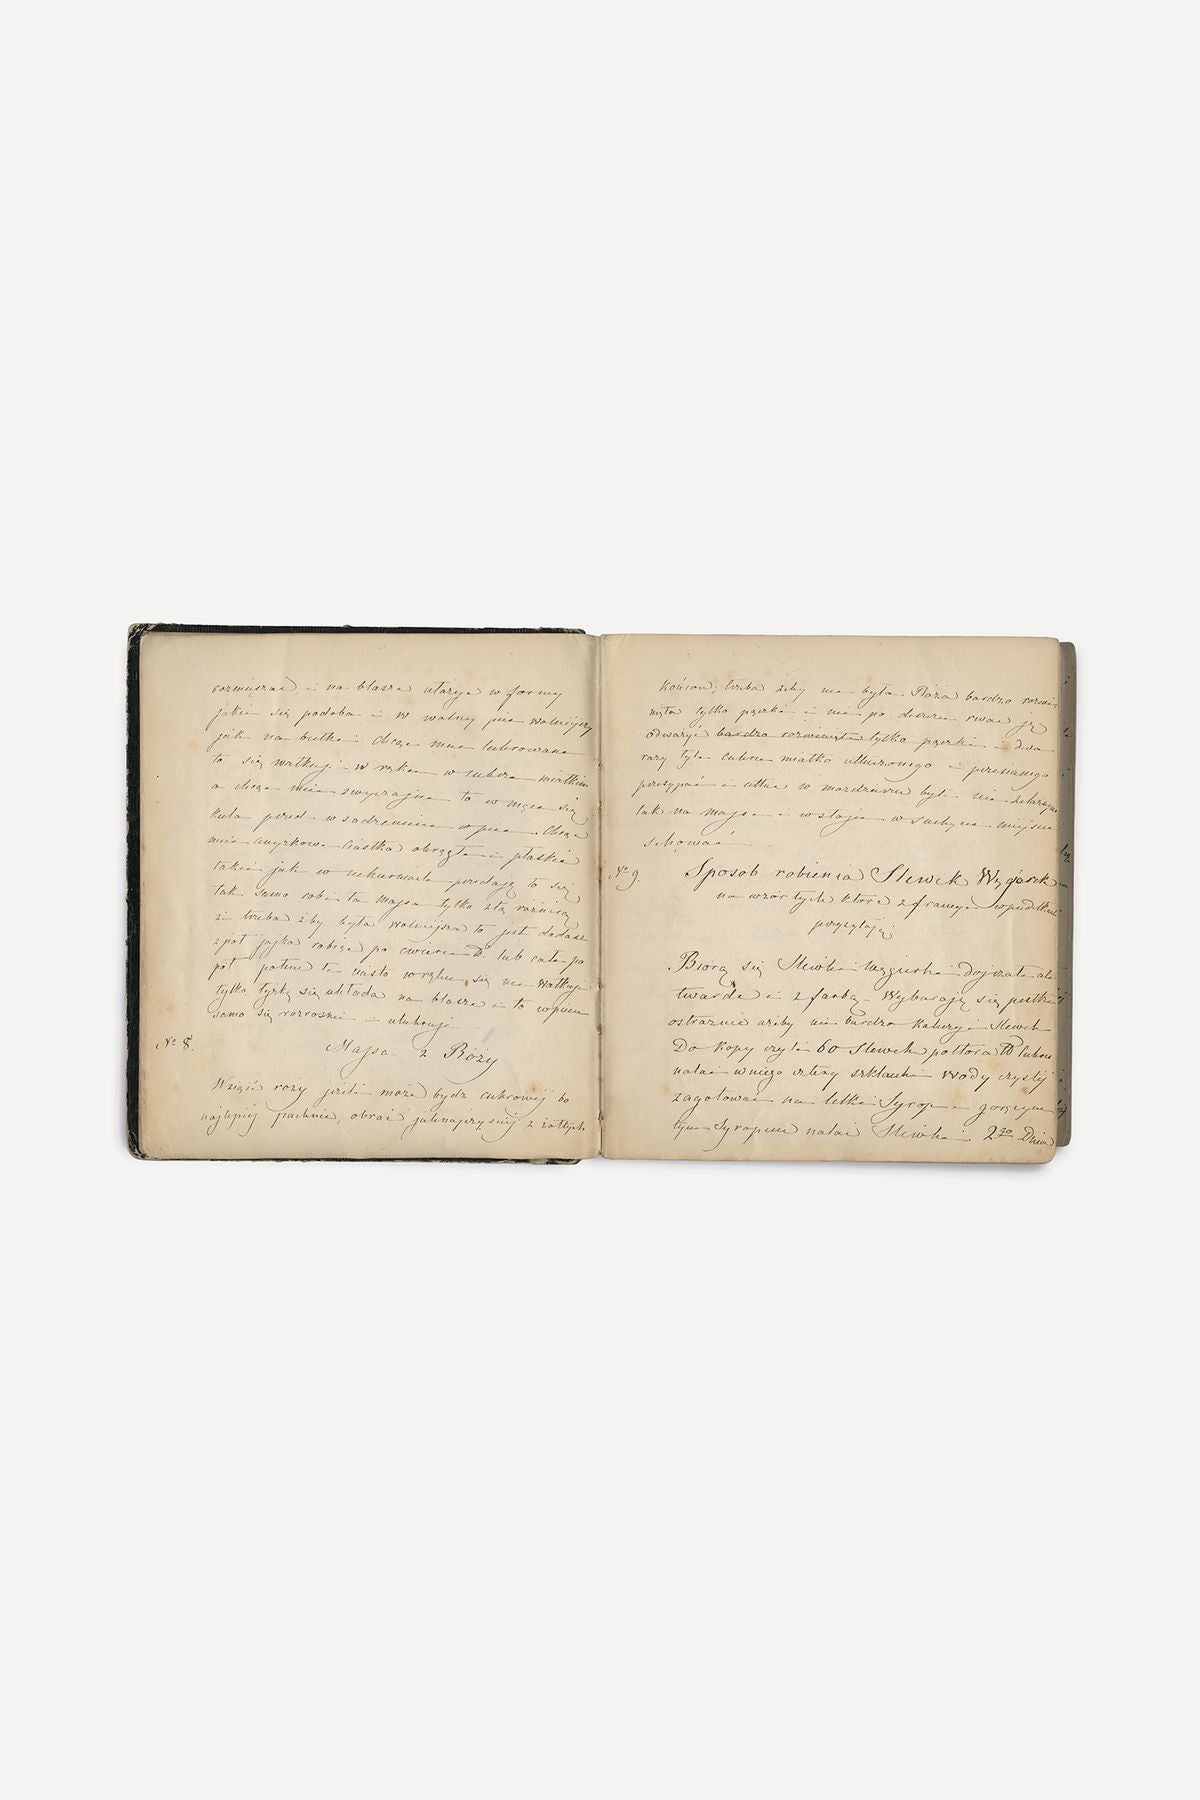 rozmieszać, i na blasze utorzyć w formy
jakie się podoba i w wolny piec wolniejszy
jak na bułki. Chcąc mieć lukrowane
to się wałkuje w ręku w cukrze miałkim
a chcąc mieć zwyczajne to w mące się
kula przed wsadzeniem w piec. Chcąc
mieć anyżkowe Ciastka okrągłe i płaskie
takie jak w cukierniach przedają to się
tak samo robi ta massa tylko z tą różnicą
że trzeba żeby była wolniejsza to jest dodasz
zpół jajka robiąc po ćwierci lub całe po
pół potem to ciasto w ręku się nie wałkuje
tylko łyżką się układa na blasze i to w piecu
samo się rozrośnie i ulukruje
No 8.
Massa z Róży
Wziąść rozy jeżeli może bydź cukrowej bo
najlepiej pachnie, obrać jaknajczyściej z żółtych
końców; trzeba żeby nie była Róża bardzo rozwi
nięta tylko pączki i nie po deszczu rwać ją
odważyć bardzo rozwinięte tylko pączki i dwa
razy tyle cukru miałko utłuczonego i przesianego
przesypać i utłuc w mozdzierzu byle nie żelaznym
tak na massę i w słoju w suchym miejscu
schować
No 9.
Sposób robienia Sliwek Węgierek
na wzór tych które z francyi w pudełkach
przysyłają
Biorą się Sliwki węgierki dojrzałe ale
twarde i z farbą Wybierają się pestki
ostrożnie ażeby nie bardzo kaleczyć Sliwek
Do kopy czyli 60 Sliwek półtora ℔ cukru
nalać w niego cztery szklanki Wody czystej
zagotować na letki Syrop i gorącym
tym Syropem nalać Sliwki. 2go Dnia